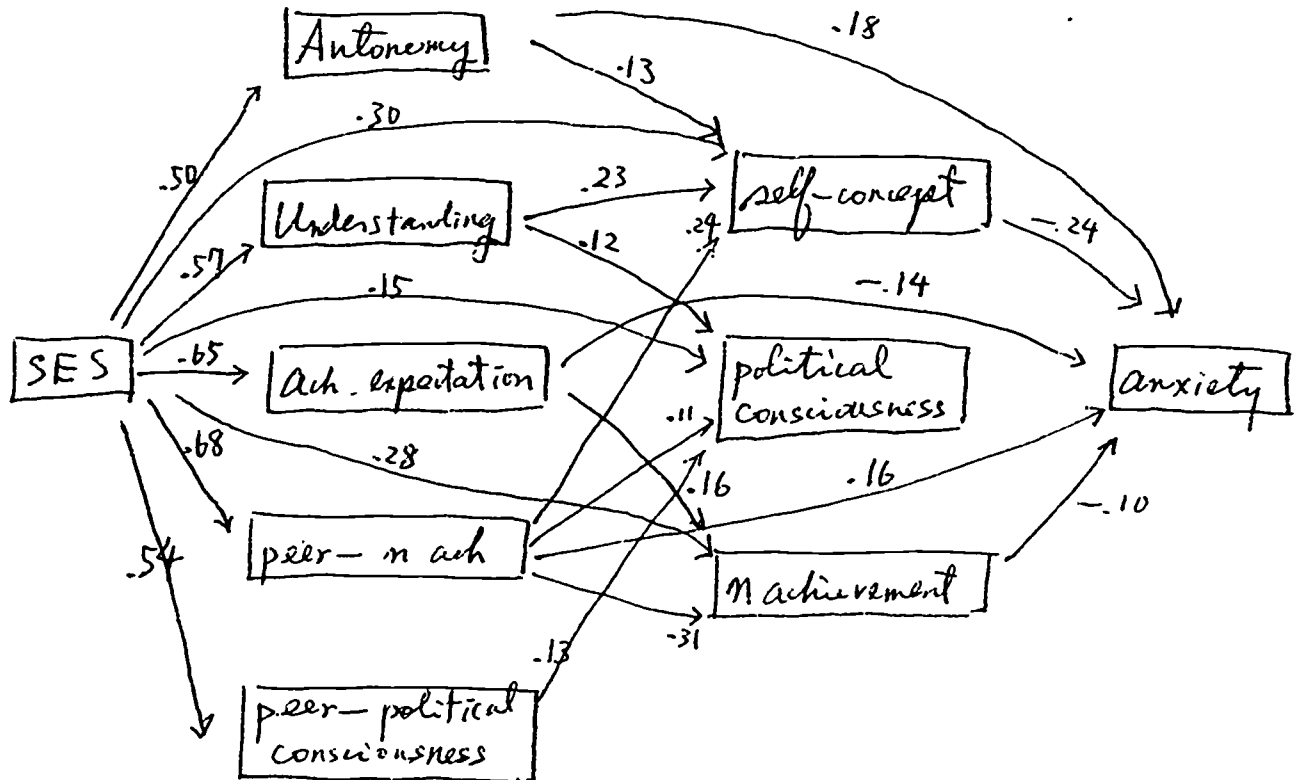 Autonomy
.18
.13
.30
.50
Understanding
.23
self-concept
.24
-.24
.12
.57
.15
-.14
SES
.65
Ach. expectation
political
consciousness
anxiety
.11
.68
.28
.16
.16
-.10
peer-n ach
n achievement
.54
.31
.13
peer-political
consciousness